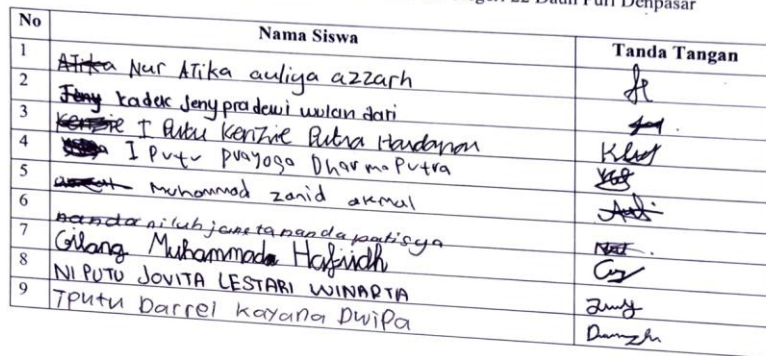 22 Daun Puri Denpasar
No Nama Siswa Tanda Tangan
1 Atika Nur Atika auliya azzarh
2 Jeny kadek Jeny pradewi wulan dari
3 Kenzie I Putu Kenzie Putra Hardanan
4 I Putu Prayoga Dharma Putra
5 Mohammad zanid akmal
6 nanda niluh janeta nanda patisya
7 Gilang Muhammad Hafiidh
8 NI PUTU JOVITA LESTARI WINARTA
9 IPutu Darrel Kayana Dwipa